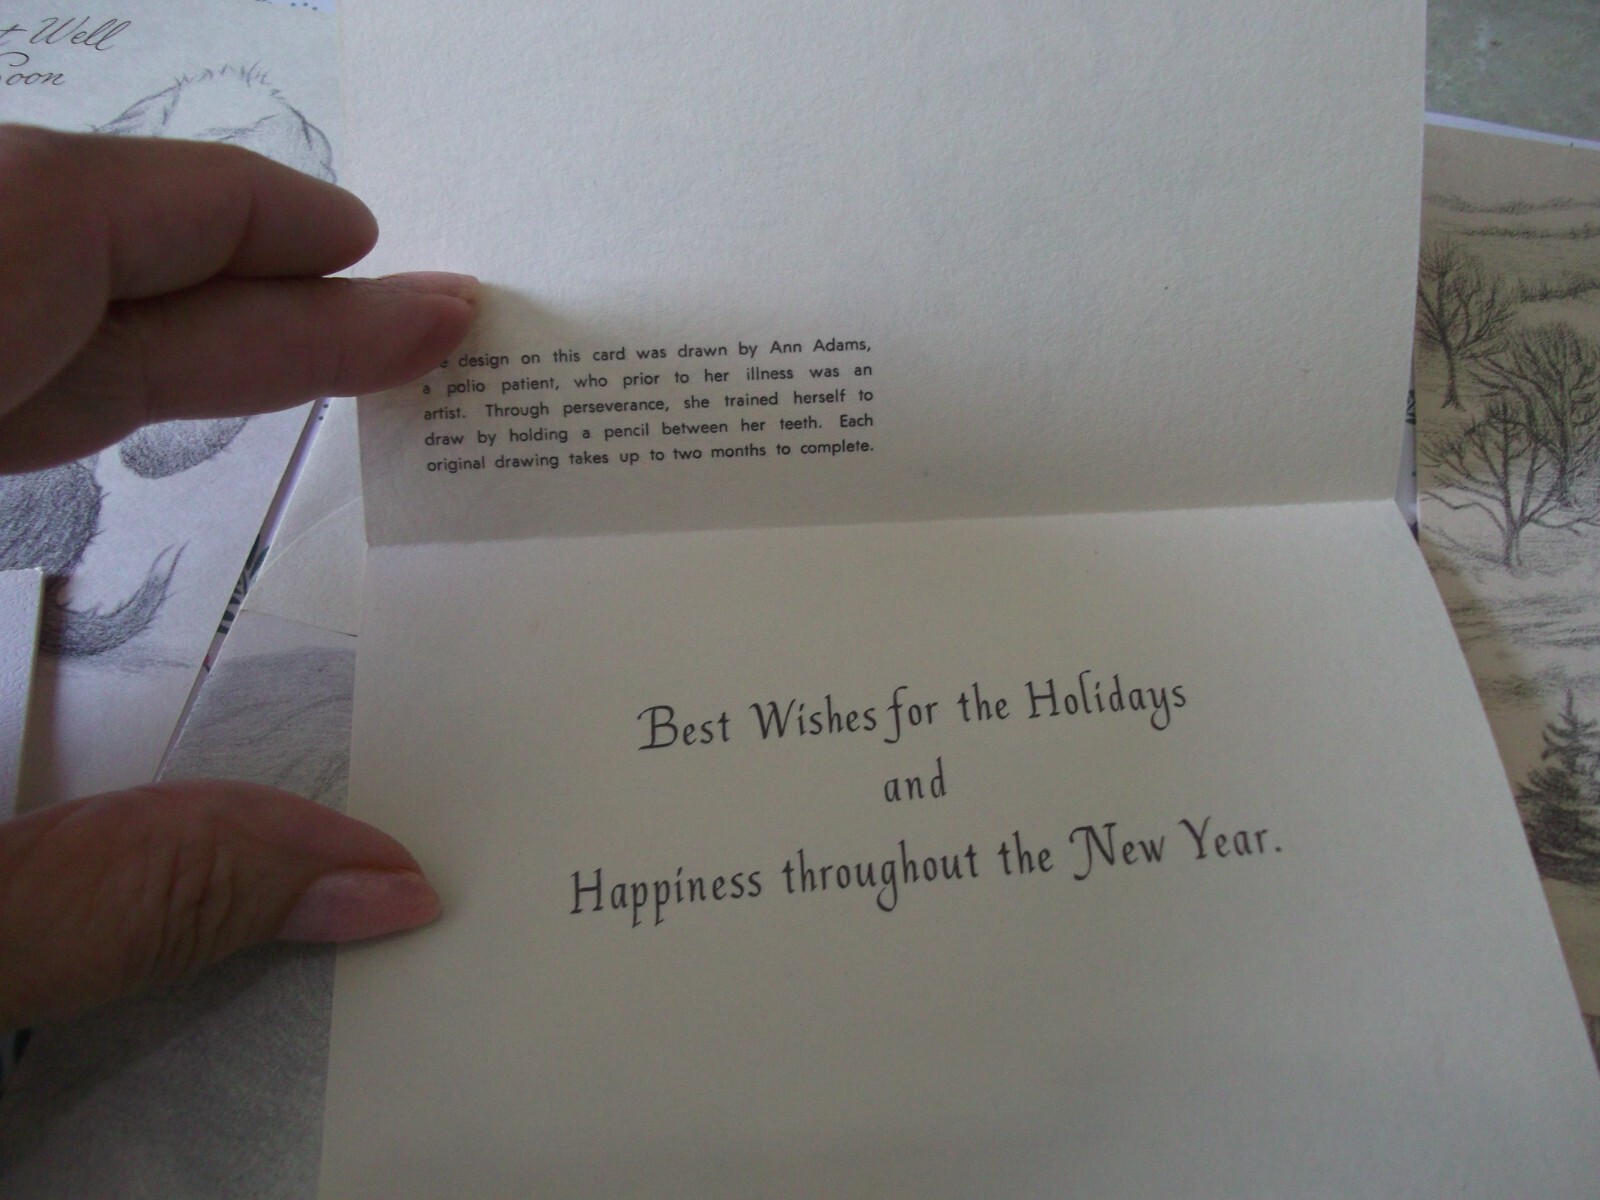 Well
design on this card was drawn by Ann Adams,
a polio patient, who prior to her illness was an
artist. Through perseverance, she trained herself to
draw by holding a pencil between her teeth. Each
original drawing takes up to two months to complete.
Best Wishes for the Holidays
and
Happiness throughout the New Year.